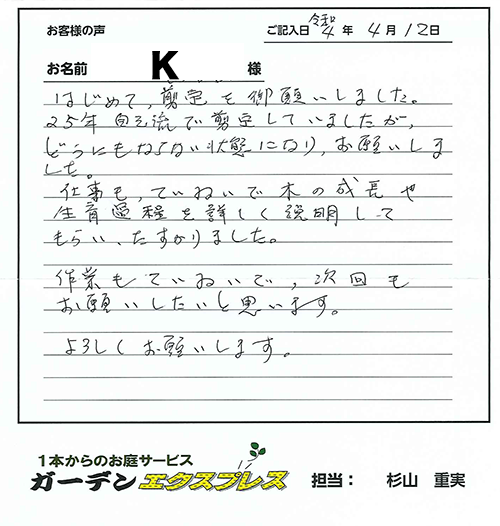 お客様の声
ご記入日 令和4年 4月12日
お名前 K 様
はじめて、剪定を御願いしました。
25年自己流で剪定していましたが、
どうにもならない状態になり、お願いしま
した。
仕事も、ていねいで木の成長や
生育過程を詳しく説明して
もらい、たすかりました。
作業もていねいで、次回も
お願いしたいと思います。
よろしくお願いします。
1本からのお庭サービス
ガーデンエクスプレス 担当： 杉山 重実